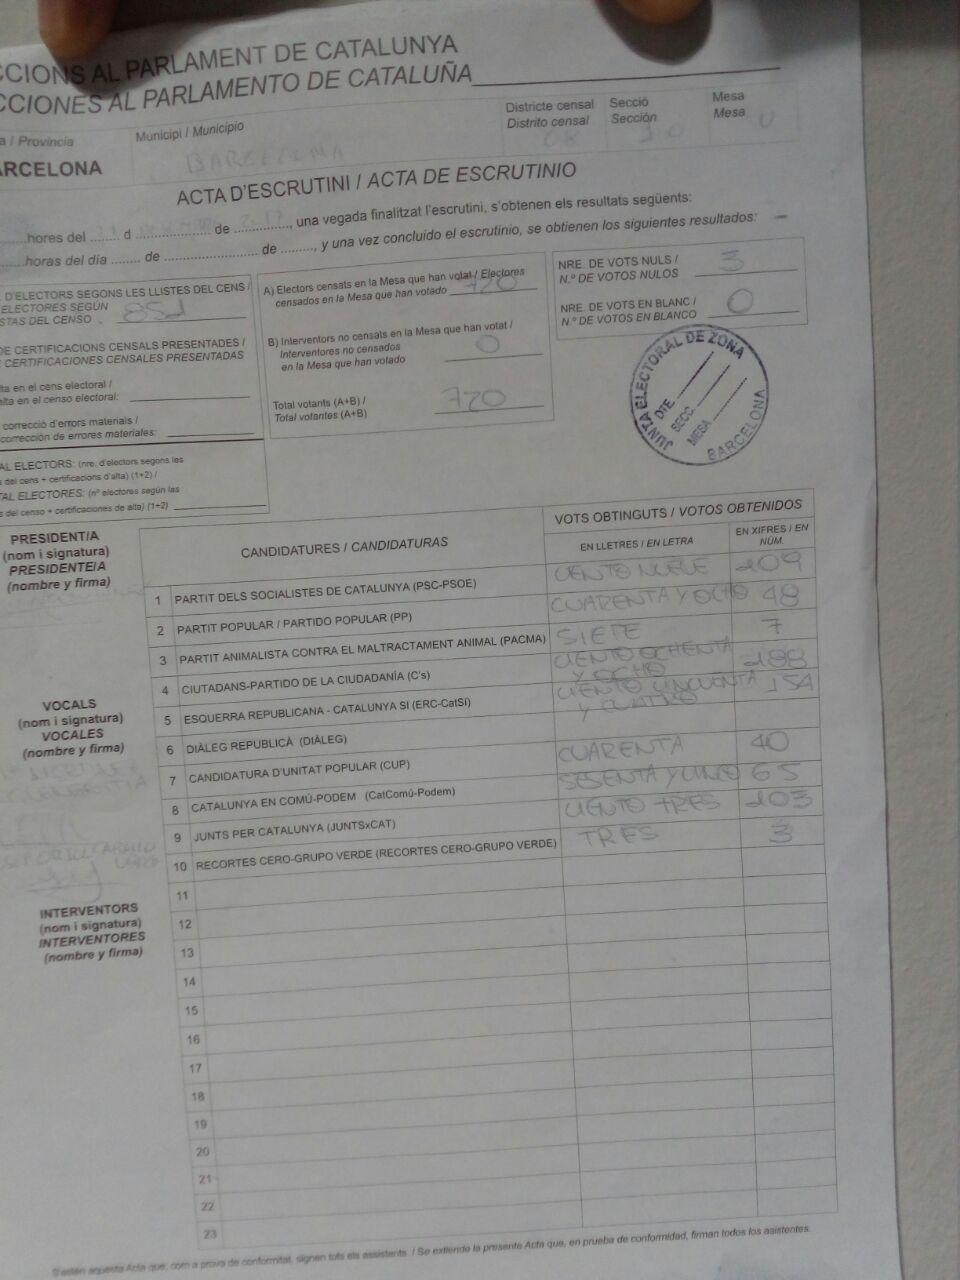 CCIONS AL PARLAMENT DE CATALUNYA
CCIONES AL PARLAMENTO DE CATALUÑA
a / Provincia
ARCELONA
Municipi / Municipio
BARCELONA
Districte censal
Distrito censal
08
Secció
Sección
10
Mesa
Mesa
U
ACTA D'ESCRUTINI / ACTA DE ESCRUTINIO
hores del 21 d de 2017, una vegada finalitzat l'escrutini, s'obtenen els resultats següents:
horas del día ........ de ........................ de ........., y una vez concluido el escrutinio, se obtienen los siguientes resultados:
D'ELECTORS SEGONS LES LLISTES DEL CENS /
ELECTORES SEGÚN
STAS DEL CENSO 851
DE CERTIFICACIONS CENSALS PRESENTADES /
CERTIFICACIONES CENSALES PRESENTADAS
lta en el cens electoral /
alta en el censo electoral:
correcció d'errors materials /
corrección de errores materiales:
AL ELECTORS: (nre. d'electors segons les
s del cens + certificacions d'alta) (1+2) /
TAL ELECTORES: (nº electores según las
s del censo + certificaciones de alta) (1+2)
A) Electors censats en la Mesa que han votat / Electores
censados en la Mesa que han votado 720
B) Interventors no censats en la Mesa que han votat /
Interventores no censados
en la Mesa que han votado 0
Total votants (A+B) /
Total votantes (A+B) 720
NRE. DE VOTS NULS /
N.º DE VOTOS NULOS 3
NRE. DE VOTS EN BLANC /
N.º DE VOTOS EN BLANCO 0
JUNTA ELECTORAL DE ZONA
DTE.
SECC.
MESA
BARCELONA
PRESIDENT/A
(nom i signatura)
PRESIDENTE/A
(nombre y firma)
VOCALS
(nom i signatura)
VOCALES
(nombre y firma)
INTERVENTORS
(nom i signatura)
INTERVENTORES
(nombre y firma)
CANDIDATURES / CANDIDATURAS
VOTS OBTINGUTS / VOTOS OBTENIDOS
EN LLETRES / EN LETRA
EN XIFRES / EN NÚM.
1 PARTIT DELS SOCIALISTES DE CATALUNYA (PSC-PSOE) CIENTO NUEVE 109
2 PARTIT POPULAR / PARTIDO POPULAR (PP) CUARENTA Y OCHO 48
3 PARTIT ANIMALISTA CONTRA EL MALTRACTAMENT ANIMAL (PACMA) SIETE 7
4 CIUTADANS-PARTIDO DE LA CIUDADANÍA (C's) CIENTO OCHENTA Y OCHO 188
5 ESQUERRA REPUBLICANA - CATALUNYA SI (ERC-CatSí) CIENTO CINCUENTA Y CUATRO 154
6 DIÀLEG REPUBLICÀ (DIÀLEG)
7 CANDIDATURA D'UNITAT POPULAR (CUP) CUARENTA 40
8 CATALUNYA EN COMÚ-PODEM (CatComú-Podem) SESENTA Y CINCO 65
9 JUNTS PER CATALUNYA (JUNTSxCAT) CIENTO TRES 103
10 RECORTES CERO-GRUPO VERDE (RECORTES CERO-GRUPO VERDE) TRES 3
11
12
13
14
15
16
17
18
19
20
21
22
23
S'estén aquesta Acta que, com a prova de conformitat, signen tots els assistents. / Se extiende la presente Acta que, en prueba de conformidad, firman todos los asistentes.